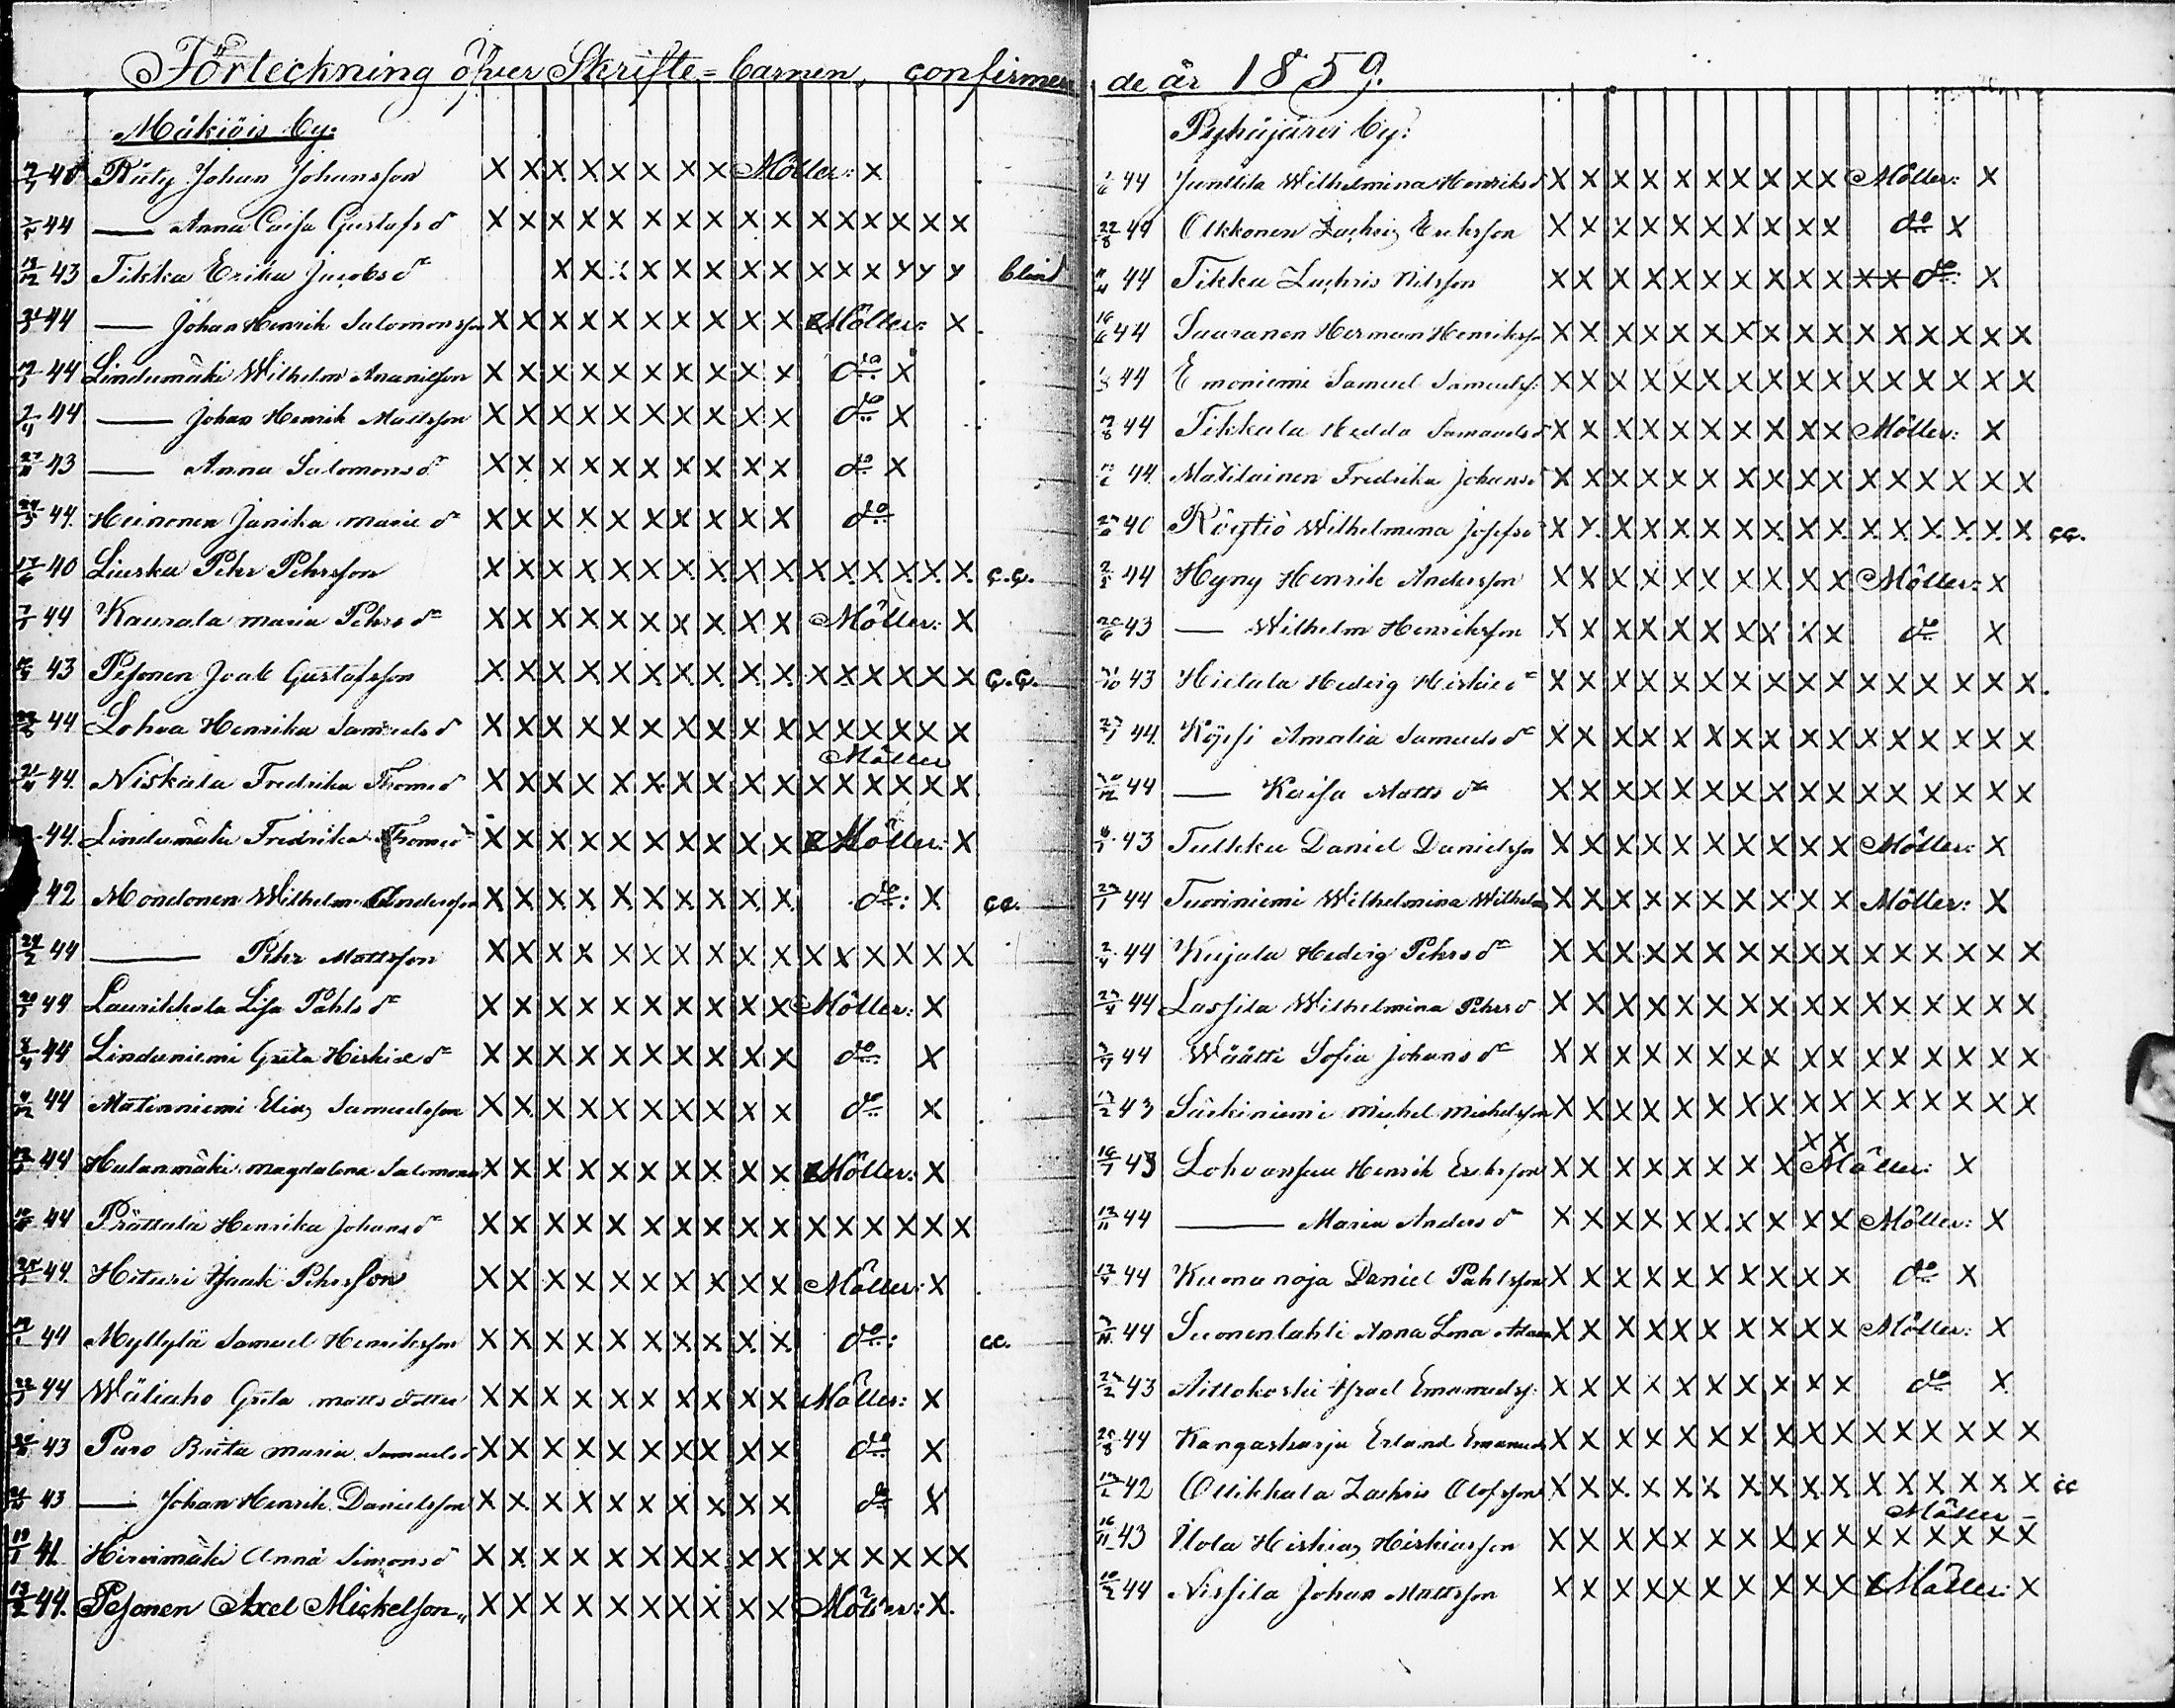 Förteckning öfver Skrifte=barnen, confirmera
Mäkiöis by:
Rüty Johan Johansson X X X X X X X X Möller: X
44 — Anna Caisa Gustafs dr X X X X X X X X X X X X X X X X
13/12 43 Tikka Erika Jacobs dr X X X X X X X X X X X X X X blind
44 — Johan Henrik Salomonsson X X X X X X X X X X Möller: X
44 Lindumäki Wilhelm Ananiesson X X X X X X X X X X do X
44 — Johan Henrik Mattsson X X X X X X X X X X do X
43 — Anna Salomons dr X X X X X X X X X X do X
44. Heinonen Janika Maria dr X X X X X X X X X X do
17/6 40 Liuska Pehr Pehrsson X X X X X X X X X X X X X X X X c.c.
44 Kaurala Maria Pehrs dr X X X X X X X X X X Möller: X
43 Pesonen Joak Gustafsson X X X X X X X X X X X X X X X X c.c.
44 Lohva Henrika Samuels dr X X X X X X X X X X X X X X X X
Möller
44. Niskala Fredrika Thoms dr X X X X X X X X X X X X X X X X
44. Lindumäki Fredrika Thoms dr X X X X X X X X X X Möller: X
42 Mondonen Wilhelm Andersson X X X X X X X X X X do: X cc.
44 — Pehr Mattsson X X X X X X X X X X X X X X X X
44 Laurikkala Lisa Påhls dr X X X X X X X X X X Möller: X
44 Linduniemi Greta Hiskias dr X X X X X X X X X X do X
44 Matinniemi Elias Samuelsson X X X X X X X X X X do X
44 Hulanmäki Magdalena Salomons X X X X X X X X X X Möller: X
44 Prättälä Henrika Johans dr X X X X X X X X X X X X X X X X
44 Hituri Isaak Pehrsson X X X X X X X X X X Möller: X
44 Myllylä Samuel Henriksson X X X X X X X X X X do: cc.
44 Wäliaho Greta Matts dotter X X X X X X X X X X Möller: X
43 Puro Brita Maria Samuels d X X X X X X X X X X do X
43 — Johan Henrik Danielsson X X X X X X X X X X do X
19/1 41 Hirvimäki Anna Simons dr X X X X X X X X X X X X X X X X
13/2 44. Pesonen Axel Mickelson X X X X X X X X X X Möller: X.
de år 1859.
Pyhäjärvi by:
44 Junttila Wilhelmina Henriks d X X X X X X X X X X Möller: X
22/8 44 Olkkonen Zachris Eriksson X X X X X X X X X X do X
44 Tikka Zachris Nilsson X X X X X X X X X X X X do: X
16/6 44 Sauranen Herman Henriksson X X X X X X X X X X X X X X X X
44 Emoniemi Samuel Samuelss: X X X X X X X X X X X X X X X X
44 Tikkala Hedda Samuels d X X X X X X X X X X Möller: X
44. Matilainen Fredrika Johans d X X X X X X X X X X X X X X X X
40 Röytiö Wilhelmina Josefs d X X X X X X X X X X X X X X X X cc.
44 Hyny Henrik Andersson X X X X X X X X X X Möller: X
43 — Wilhelm Henriksson X X X X X X X X X X do X
43 Hietala Hedvig Hiskie dr X X X X X X X X X X X X X X X X.
44.Köyssi Amalia Samuels dr X X X X X X X X X X X X X X X X
44 — Kaisa Matts dr X X X X X X X X X X X X X X X X
43 Tulkku Daniel Danielsson X X X X X X X X X X Möller: X
44 Tuoriniemi Wilhelmina Wilhelms X X X X X X X X X X Möller: X
44 Kujala Hedvig Pehrs dr X X X X X X X X X X X X X X X X
44 Lassila Wilhelmina Pehrs d X X X X X X X X X X X X X X X X
44 Wäätti Sofia Johans dr X X X X X X X X X X X X X X X X
43 Särkiniemi Michel Michelsson X X X X X X X X X X X X X X X X
X X
43 Lohvansuu Henrik Eriksson X X X X X X X X Möller: X
13/11 44 — Maria Anders d X X X X X X X X X X Möller: X
44 Kuonanoja Daniel Påhlsson X X X X X X X X X X do X
44 Suonenlahti Anna Lena Adams X X X X X X X X X X Möller: X
43 Aittokoski Israel Emanuelss: X X X X X X X X X X do X
44 Kangasharju Erland Emanuels X X X X X X X X X X X X X X X X
42 Ollikkala Zachris Olofsson X X X X X X X X X X X X X X X X cc
Möller –
16/11 43 Ilola Hiskias Hiskiasson X X X X X X X X X X X X X X X X
44 Nissila Johan Mattsson X X X X X X X X X X Möller: X